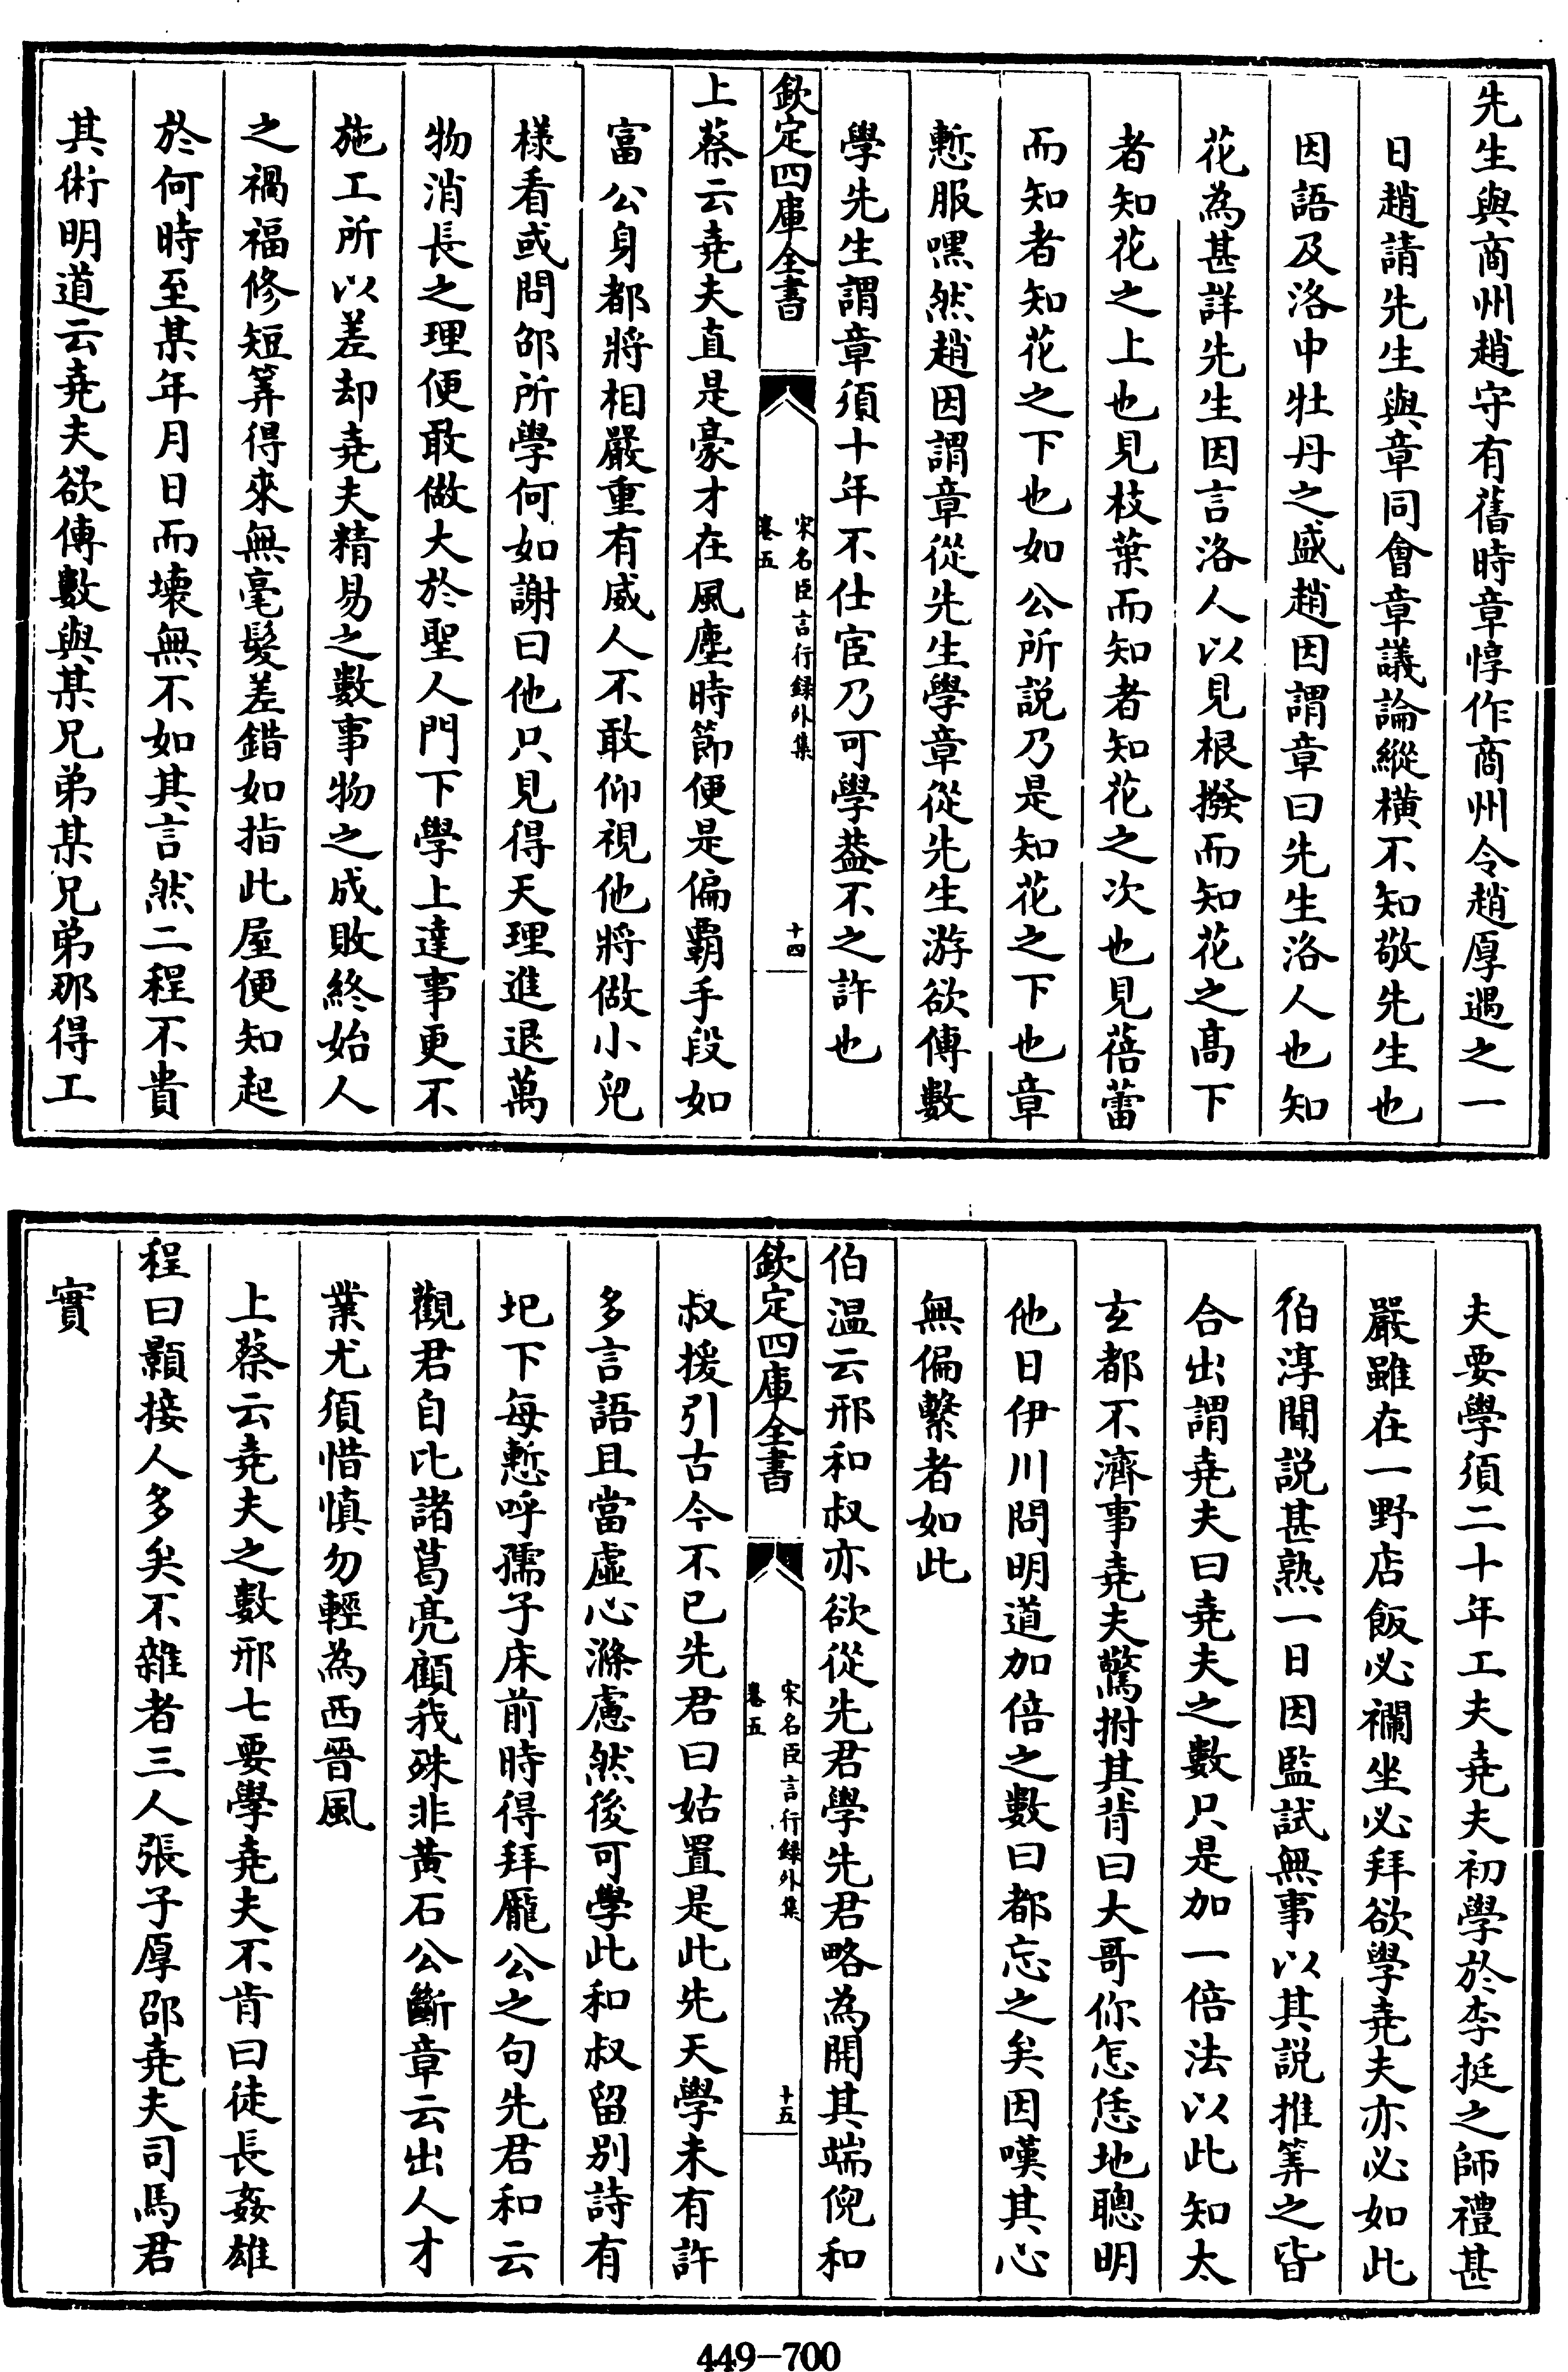 先生與商州趙守有舊時章惇作商州令趙厚遇之一
日趙請先生與章同會章議論縱橫不知敬先生也
因語及洛中牡丹之盛趙因謂章曰先生洛人也知
花為甚詳先生因言洛人以見根撥而知花之高下
者知花之上也見枝葉而知者知花之次也見蓓蕾
而知者知花之下也如公所説乃是知花之下也章
慙服嘿然趙因謂章從先生學章從先生游欲傳數
學先生謂章須十年不仕宦乃可學葢不之許也
欽定四庫全書
宋名臣言行録外集
卷五
十四
上蔡云堯夫直是豪才在風塵時節便是偏霸手段如
富公身都將相嚴重有威人不敢仰視他將做小兒
樣看或問邵所學何如謝曰他只見得天理進退萬
物消長之理便敢做大於聖人門下學上達事更不
施工所以差却堯夫精易之數事物之成敗終始人
之禍福修短筭得來無毫髮差錯如指此屋便知起
於何時至某年月日而壊無不如其言然二程不貴
其術明道云堯夫欲傳數與某兄弟某兄弟那得工
夫要學須二十年工夫堯夫初學於李挺之師禮甚
嚴雖在一野店飯必襴坐必拜欲學堯夫亦必如此
伯淳聞説甚熟一日因監試無事以其説推筭之皆
合出謂堯夫曰堯夫之數只是加一倍法以此知太
玄都不濟事堯夫驚拊其背曰大哥你怎恁地聰明
他日伊川問明道加倍之數曰都忘之矣因嘆其心
無偏繫者如此
伯温云邢和叔亦欲從先君學先君略為開其端倪和
欽定四庫全書
宋名臣言行録外集
卷五
十五
叔援引古今不已先君曰姑置是此先天學未有許
多言語且當虛心滌慮然後可學此和叔留别詩有
圯下每慙呼孺子床前時得拜龐公之句先君和云
觀君自比諸葛亮顧我殊非黄石公斷章云出人才
業尤須惜慎勿輕為西晉風
上蔡云堯夫之數邢七要學堯夫不肯曰徒長姦雄
程曰顥接人多矣不雜者三人張子厚邵堯夫司馬君
實
449-700